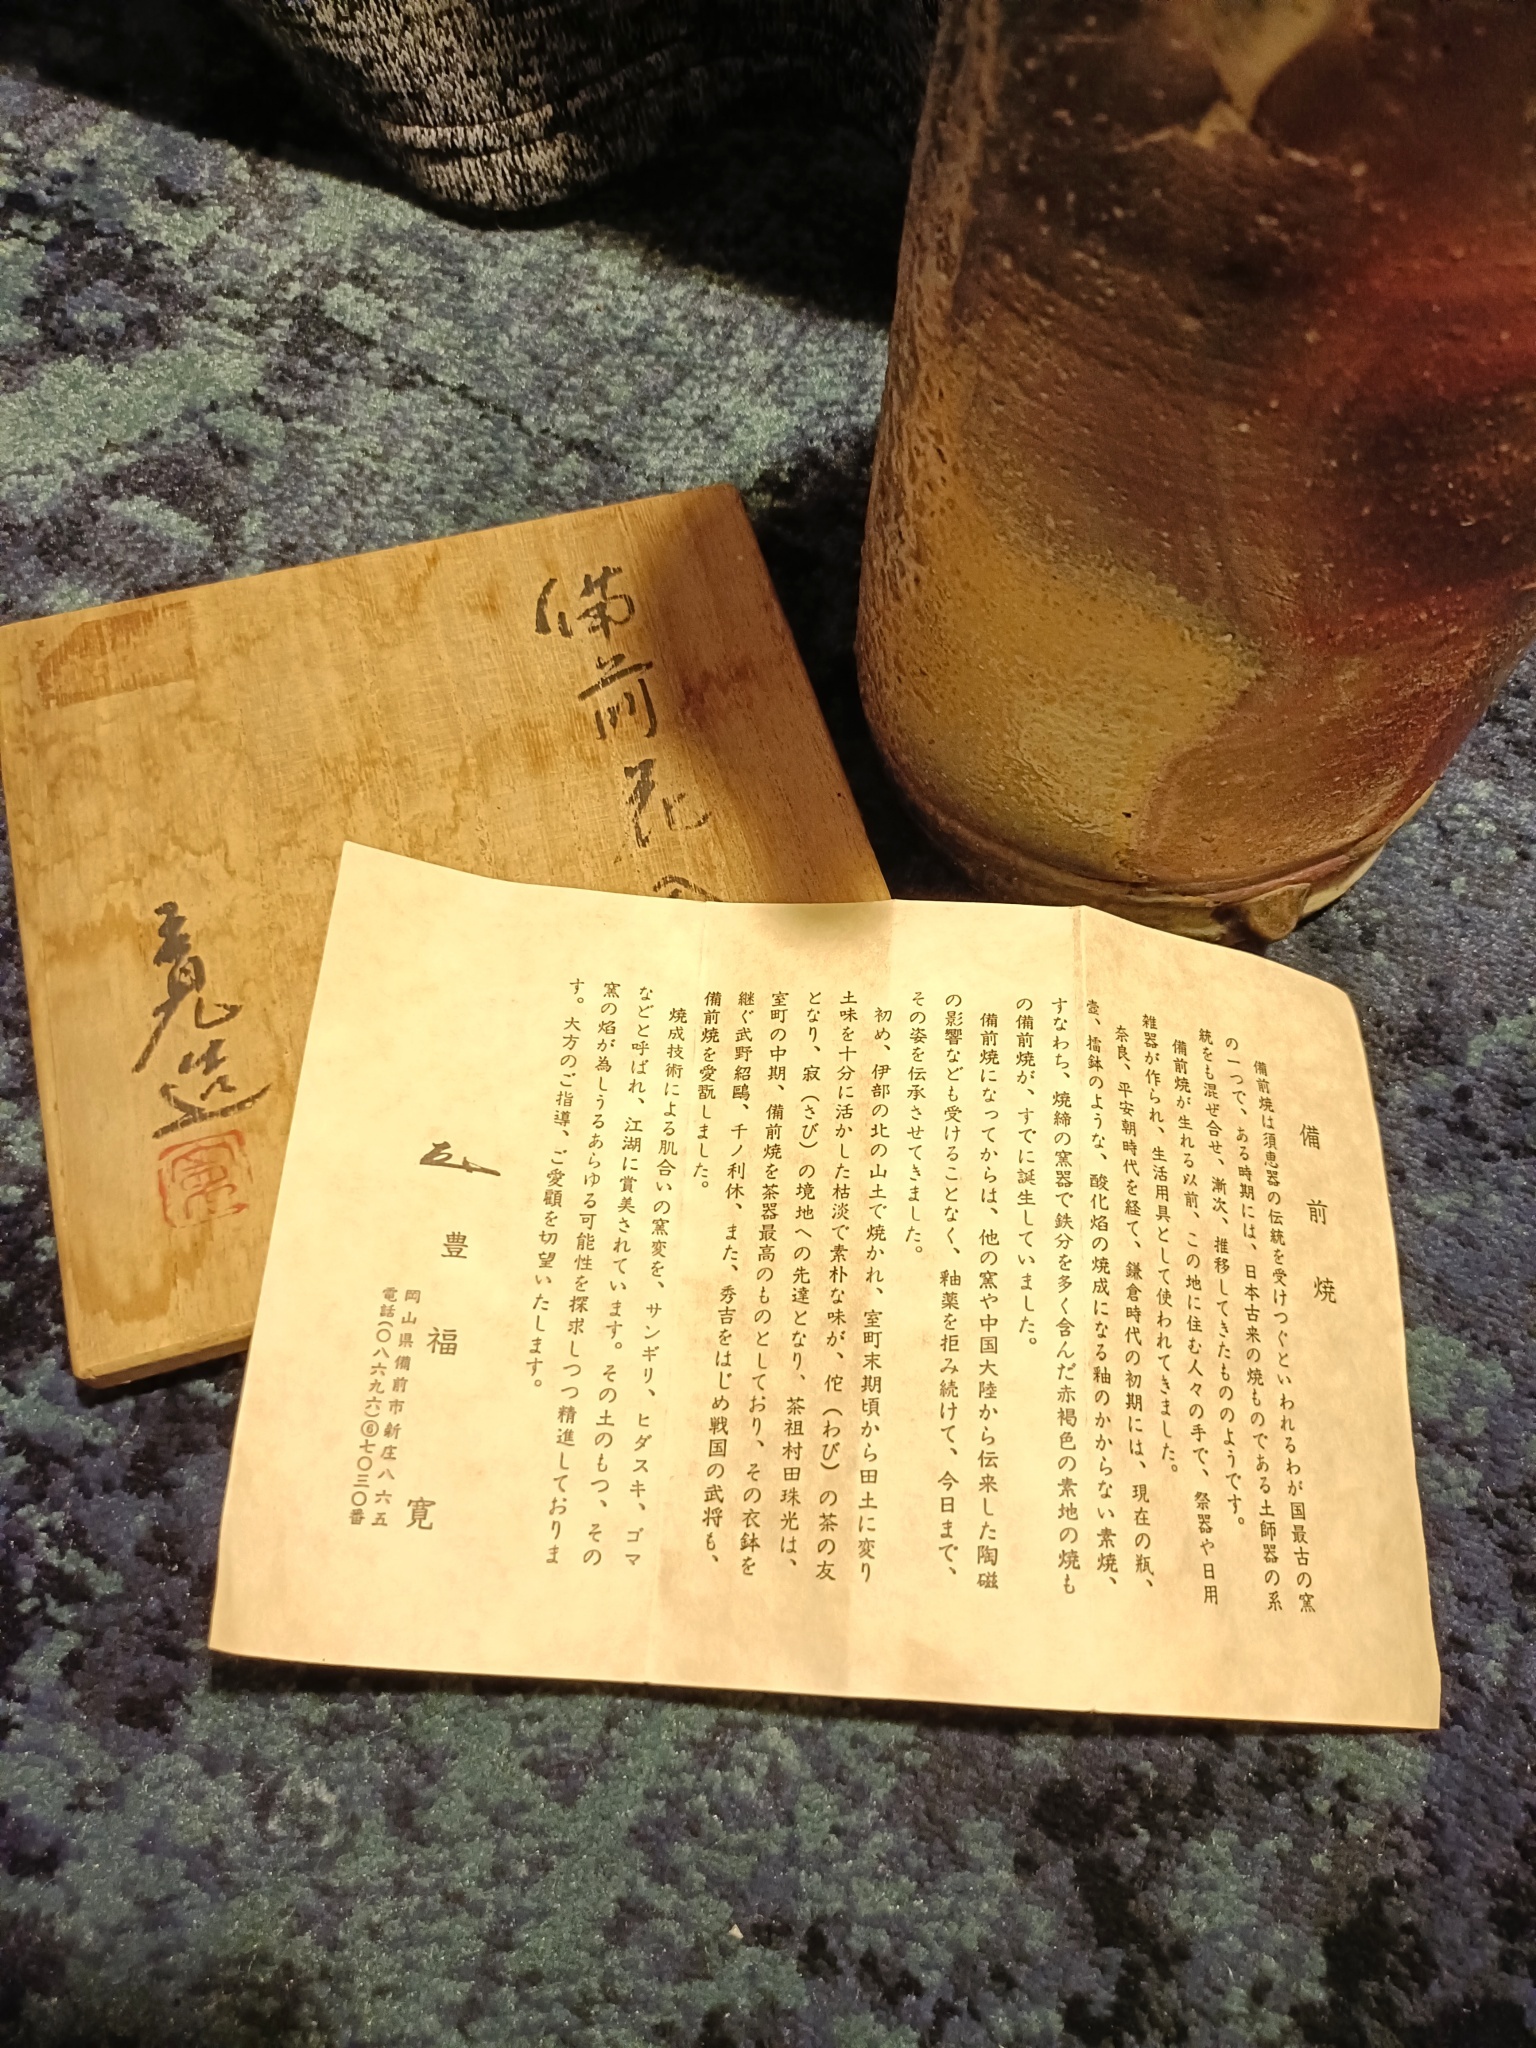 備前花
造
備前焼
備前焼は須恵器の伝統を受けつぐといわれるわが国最古の窯
の一つで、ある時期には、日本古来の焼ものである土師器の系
統をも混ぜ合せ、漸次、推移してきたもののようです。
備前焼が生れる以前、この地に住む人々の手で、祭器や日用
雑器が作られ、生活用具として使われてきました。
奈良、平安朝時代を経て、鎌倉時代の初期には、現在の瓶、
壺、擂鉢のような、酸化焰の焼成になる釉のかからない素焼、
すなわち、焼締の窯器で鉄分を多く含んだ赤褐色の素地の焼も
の備前焼が、すでに誕生していました。
備前焼になってからは、他の窯や中国大陸から伝来した陶磁
の影響なども受けることなく、釉薬を拒み続けて、今日まで、
その姿を伝承させてきました。
初め、伊部の北の山土で焼かれ、室町末期頃から田土に変り
土味を十分に活かした枯淡で素朴な味が、侘（わび）の茶の友
となり、寂（さび）の境地への先達となり、茶祖村田珠光は、
室町の中期、備前焼を茶器最高のものとしており、その衣鉢を
継ぐ武野紹鷗、千ノ利休、また、秀吉をはじめ戦国の武将も、
備前焼を愛翫しました。
焼成技術による肌合いの窯変を、サンギリ、ヒダスキ、ゴマ
などと呼ばれ、江湖に賞美されています。その土のもつ、その
窯の焰が為しうるあらゆる可能性を探求しつつ精進しておりま
す。大方のご指導、ご愛顧を切望いたします。
豊福寛
岡山県備前市新庄八六五
電話(〇八六九六)⑥七〇三〇番